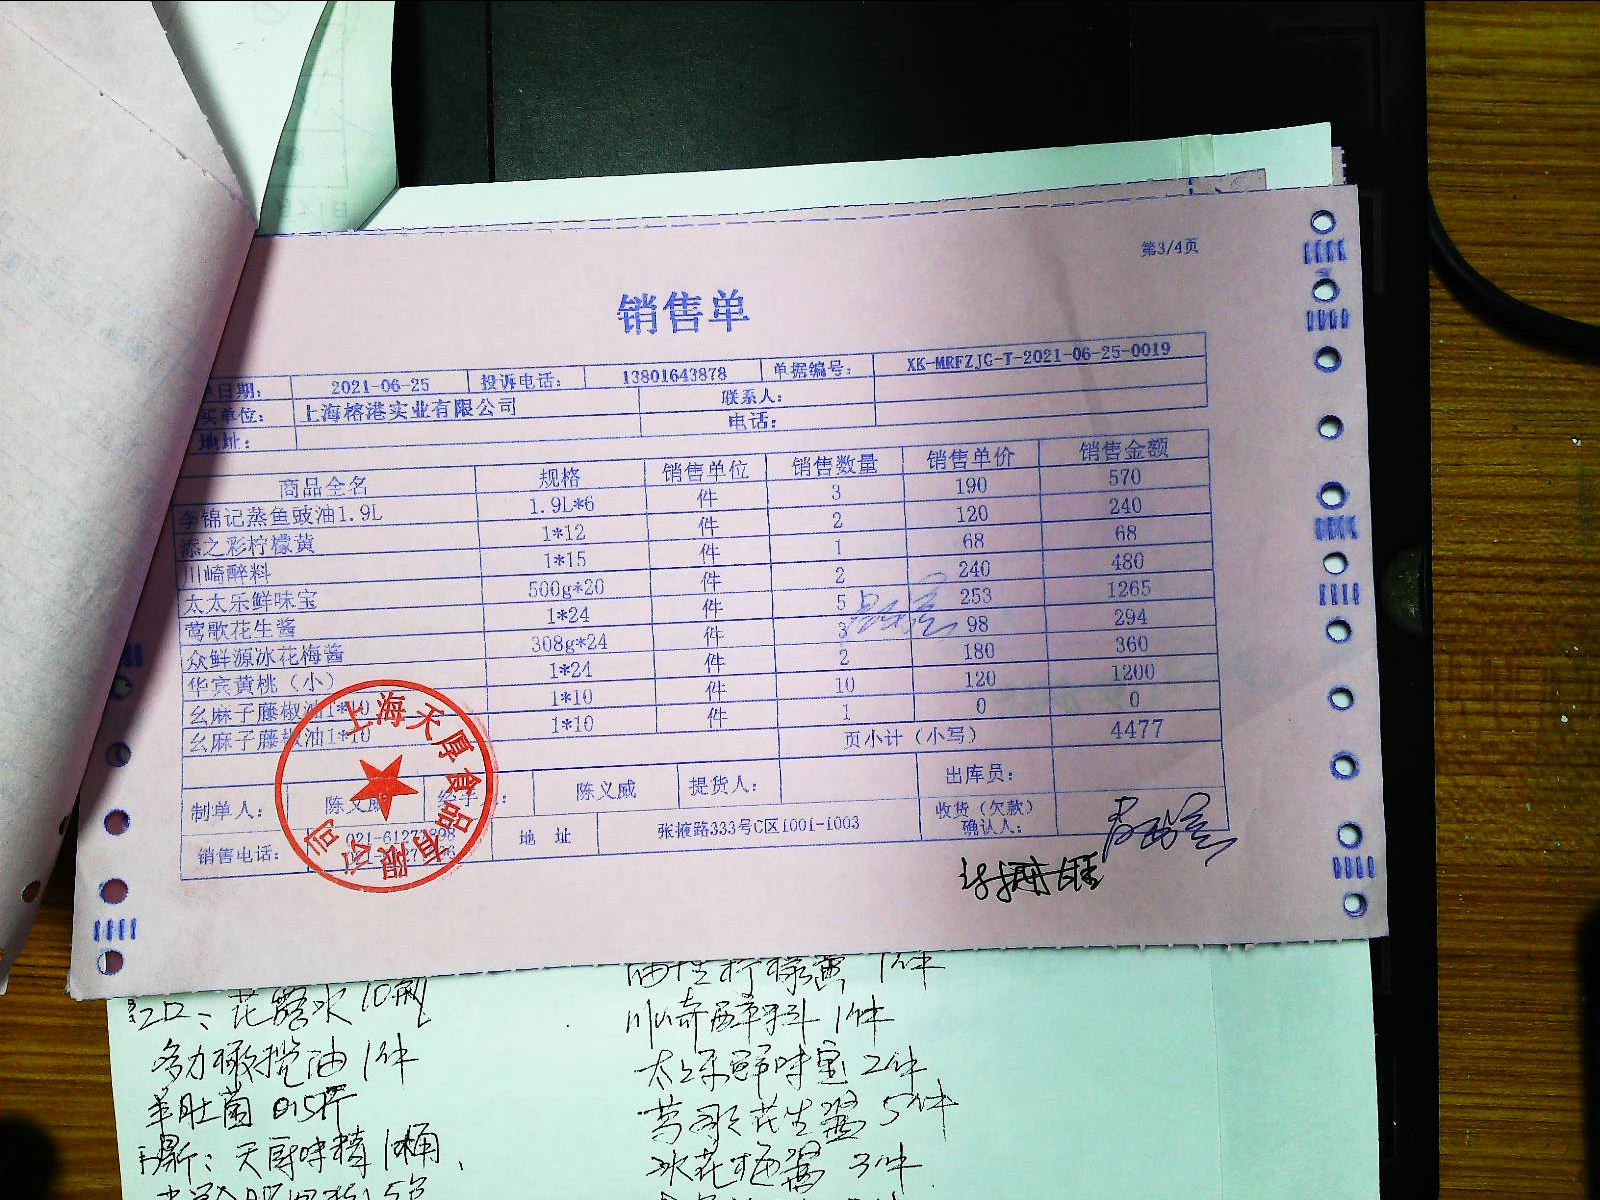 第3/4页
销售单
日期： 2021-06-25 投诉电话： 13801643878 单据编号： XK-MRFZJG-T-2021-06-25-0019
买单位： 上海榕港实业有限公司 联系人：
地址： 电话：
商品全名 规格 销售单位 销售数量 销售单价 销售金额
李锦记蒸鱼豉油1.9L 1.9L*6 件 3 190 570
添之彩柠檬黄 1*12 件 2 120 240
川崎醉料 1*15 件 1 68 68
太太乐鲜味宝 500g*20 件 2 240 480
莺歌花生酱 1*24 件 5 253 1265
众鲜源冰花梅酱 308g*24 件 3 98 294
华宾黄桃（小） 1*24 件 2 180 360
幺麻子藤椒油1*10 1*10 件 10 120 1200
幺麻子藤椒油1*10 1*10 件 1 0 0
页小计（小写） 4477
制单人： 陈义威 经手人： 陈义威 提货人： 出库员：
销售电话： 地 址 张掖路333号C区1001-1003 收货（欠款）确认人：
上海天厚食品有限公司
油性柠檬黄 1件
花露水 10瓶
川崎醉料 1件
多力橄榄油 1件
太太乐鲜味宝 2件
羊肚菌 0.5斤
莺歌花生酱 5件
天厨味精 1桶
冰花梅酱 3件